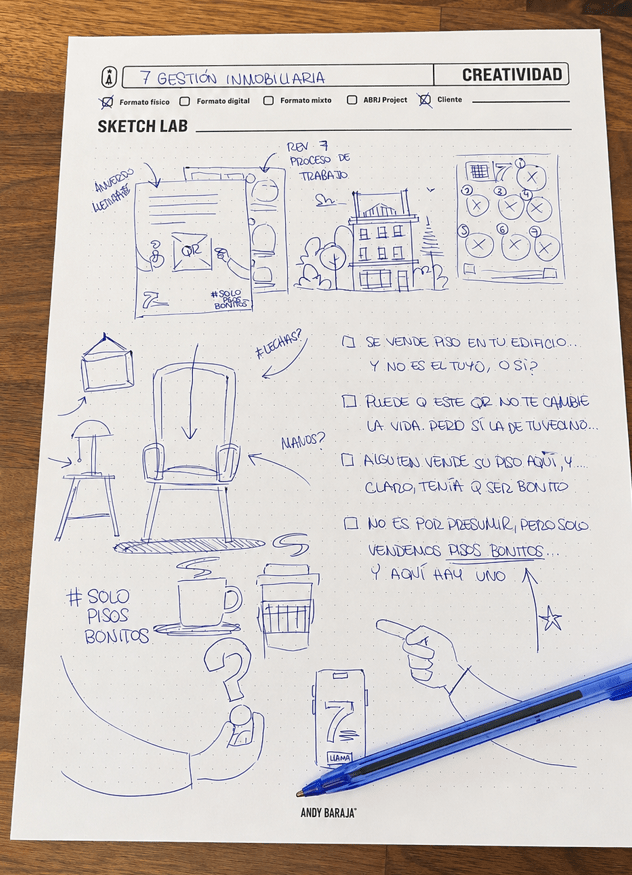 7 GESTIÓN INMOBILIARIA
CREATIVIDAD
Formato físico
Formato digital
Formato mixto
ABRJ Project
Cliente
SKETCH LAB
REV 7
PROCESO DE
TRABAJO
ANVERDO
QR
7
#SOLO
PISOS
BONITOS
7
1
2
3
4
5
6
9
#LECHAS?
MANOS?
SE VENDE PISO EN TU EDIFICIO...
Y NO ES EL TUYO, O SI?
PUEDE Q ESTE QR NO TE CAMBIE
LA VIDA. PERO SÍ LA DE TU VECINO...
ALGUIEN VENDE SU PISO AQUÍ, Y...
CLARO, TENÍA Q SER BONITO
NO ES POR PRESUMIR, PERO SOLO
VENDEMOS PISOS BONITOS...
Y AQUÍ HAY UNO
# SOLO
PISOS
BONITOS
?
7
LLAMA
ANDY BARAJA™